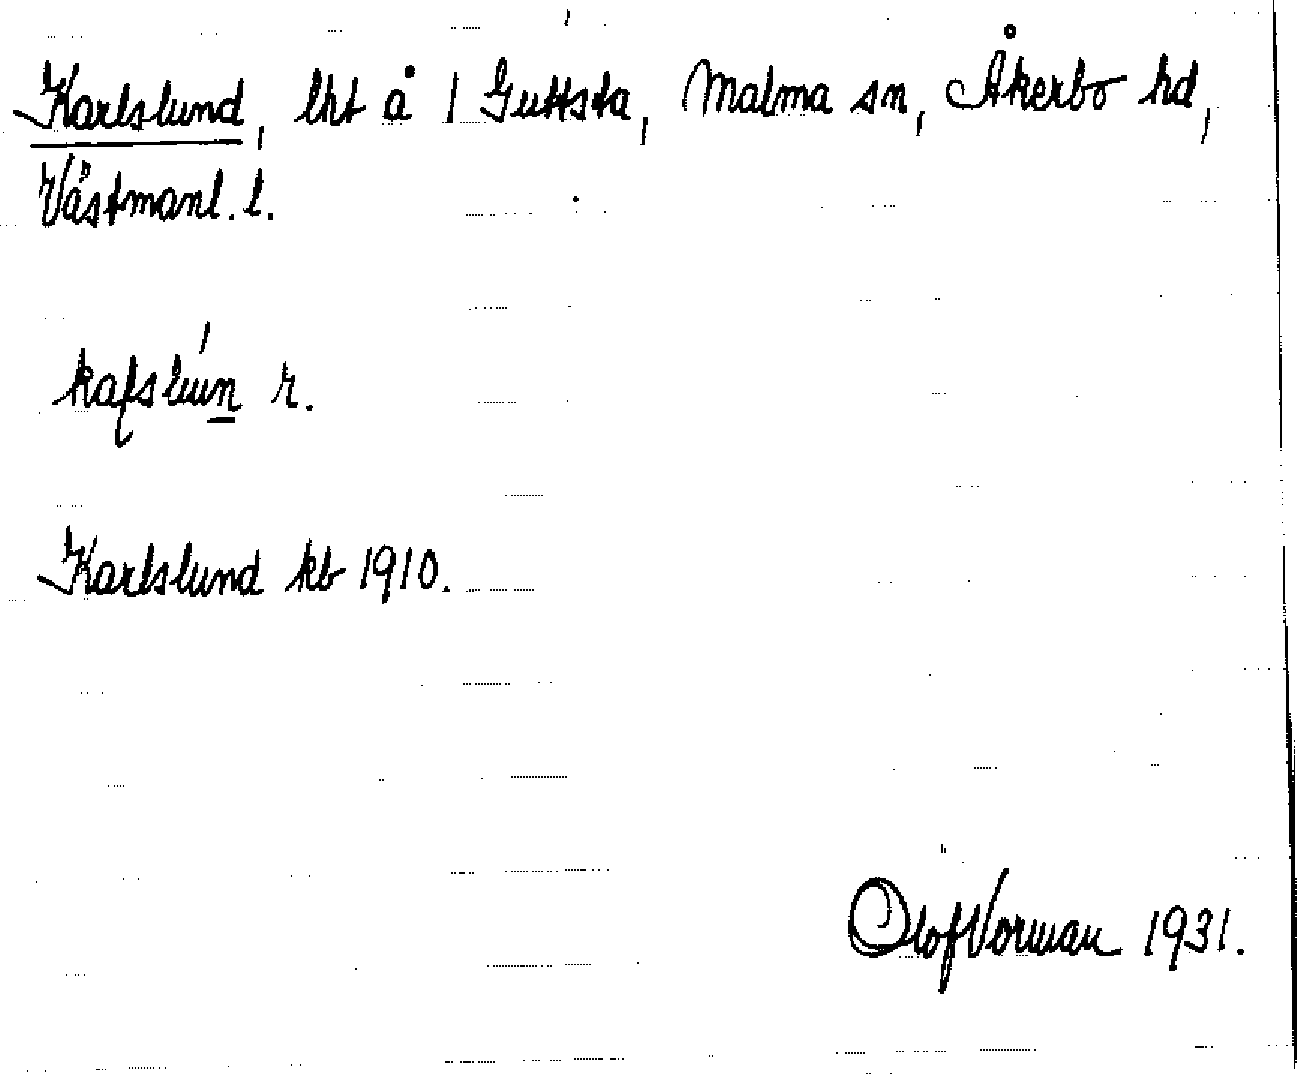 Karlslund, lht å 1 Guttsta, Malma sn, Åkerbo hd,
Västmanl. l.
r.
Karlslund kb 1910.
Olof Vorman 1931.